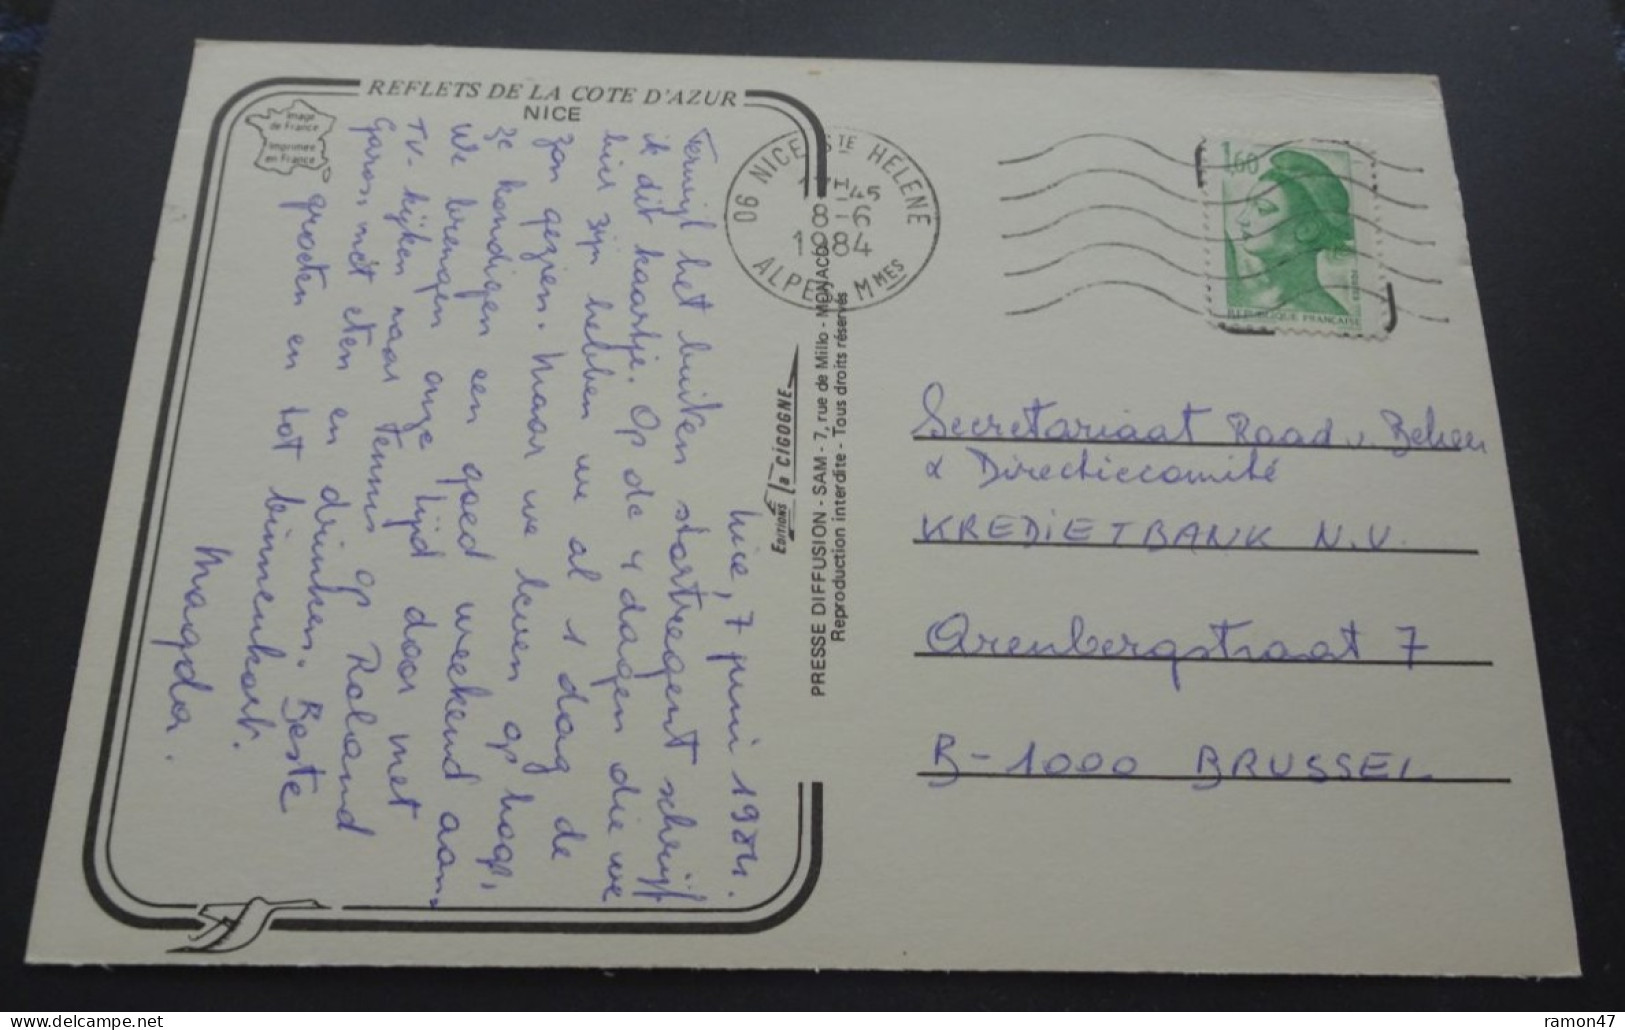 REFLETS DE LA COTE D'AZUR
NICE
Image
de France
Imprimée
en France
Nice, 7 juni 1984.
Terwijl het buiten stortregent schrijf
ik dit kaartje. Op de 4 dagen die we
hier zijn hebben we al 1 dag de
zon gezien. Maar we leven op hoop,
ze kondigen een goed weekend aan.
We brengen onze tijd door met
TV-kijken naar tennis op Roland
Garros, met eten en drinken. Beste
groeten en tot binnenkort.
Magda.
EDITIONS la CIGOGNE
PRESSE DIFFUSION - SAM - 7, rue de Millo - MONACO
Reproduction interdite - Tous droits réservés
06 NICE STE HELENE
45
8-6
1984
ALPES Mmes
1,60
REPUBLIQUE FRANÇAISE
Secretariaat Raad v. Beheer
& Directiecomité
KREDIETBANK N.V.
Arenbergstraat 7
B-1000 BRUSSEL
ramon47